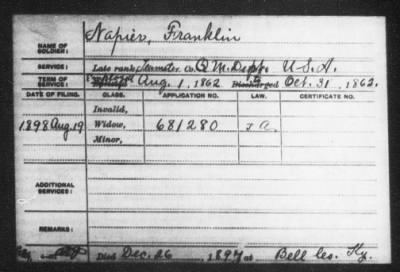 NAME OF SOLDIER: Napier, Franklin
SERVICE: Late rank, Teamster, Co. Q. M. Dept. U. S. A.
TERM OF SERVICE: Enlisted Aug. 1, 1862 Discharged Oct. 31, 1862.
DATE OF FILING. CLASS. APPLICATION NO. LAW. CERTIFICATE NO.
Invalid,
1898 Aug 19 Widow, 681280
Minor,
ADDITIONAL SERVICES:
REMARKS:
Died Dec. 26, 1897 at Bell Co. Ky.